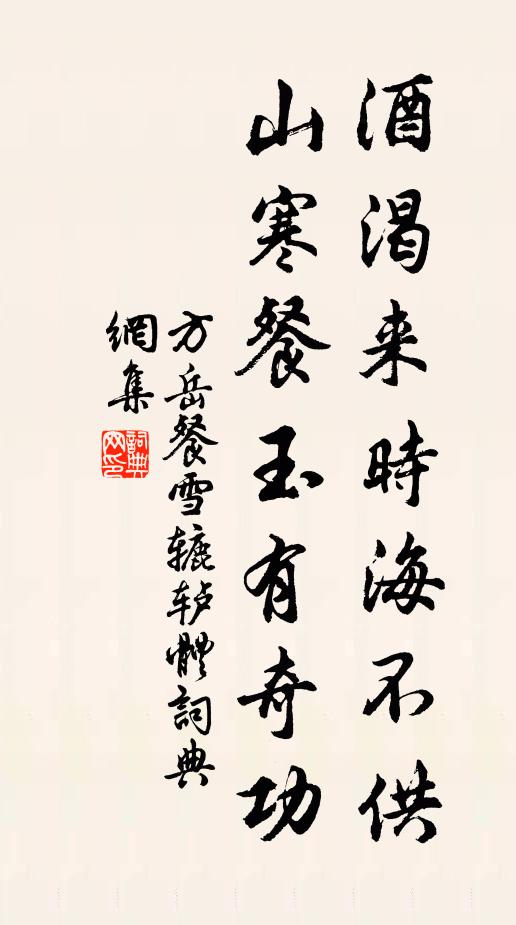 酒渴来時海不供
山寒餐玉有奇功
方岳餐雪辘轳體詞典
網集
詞典
网印